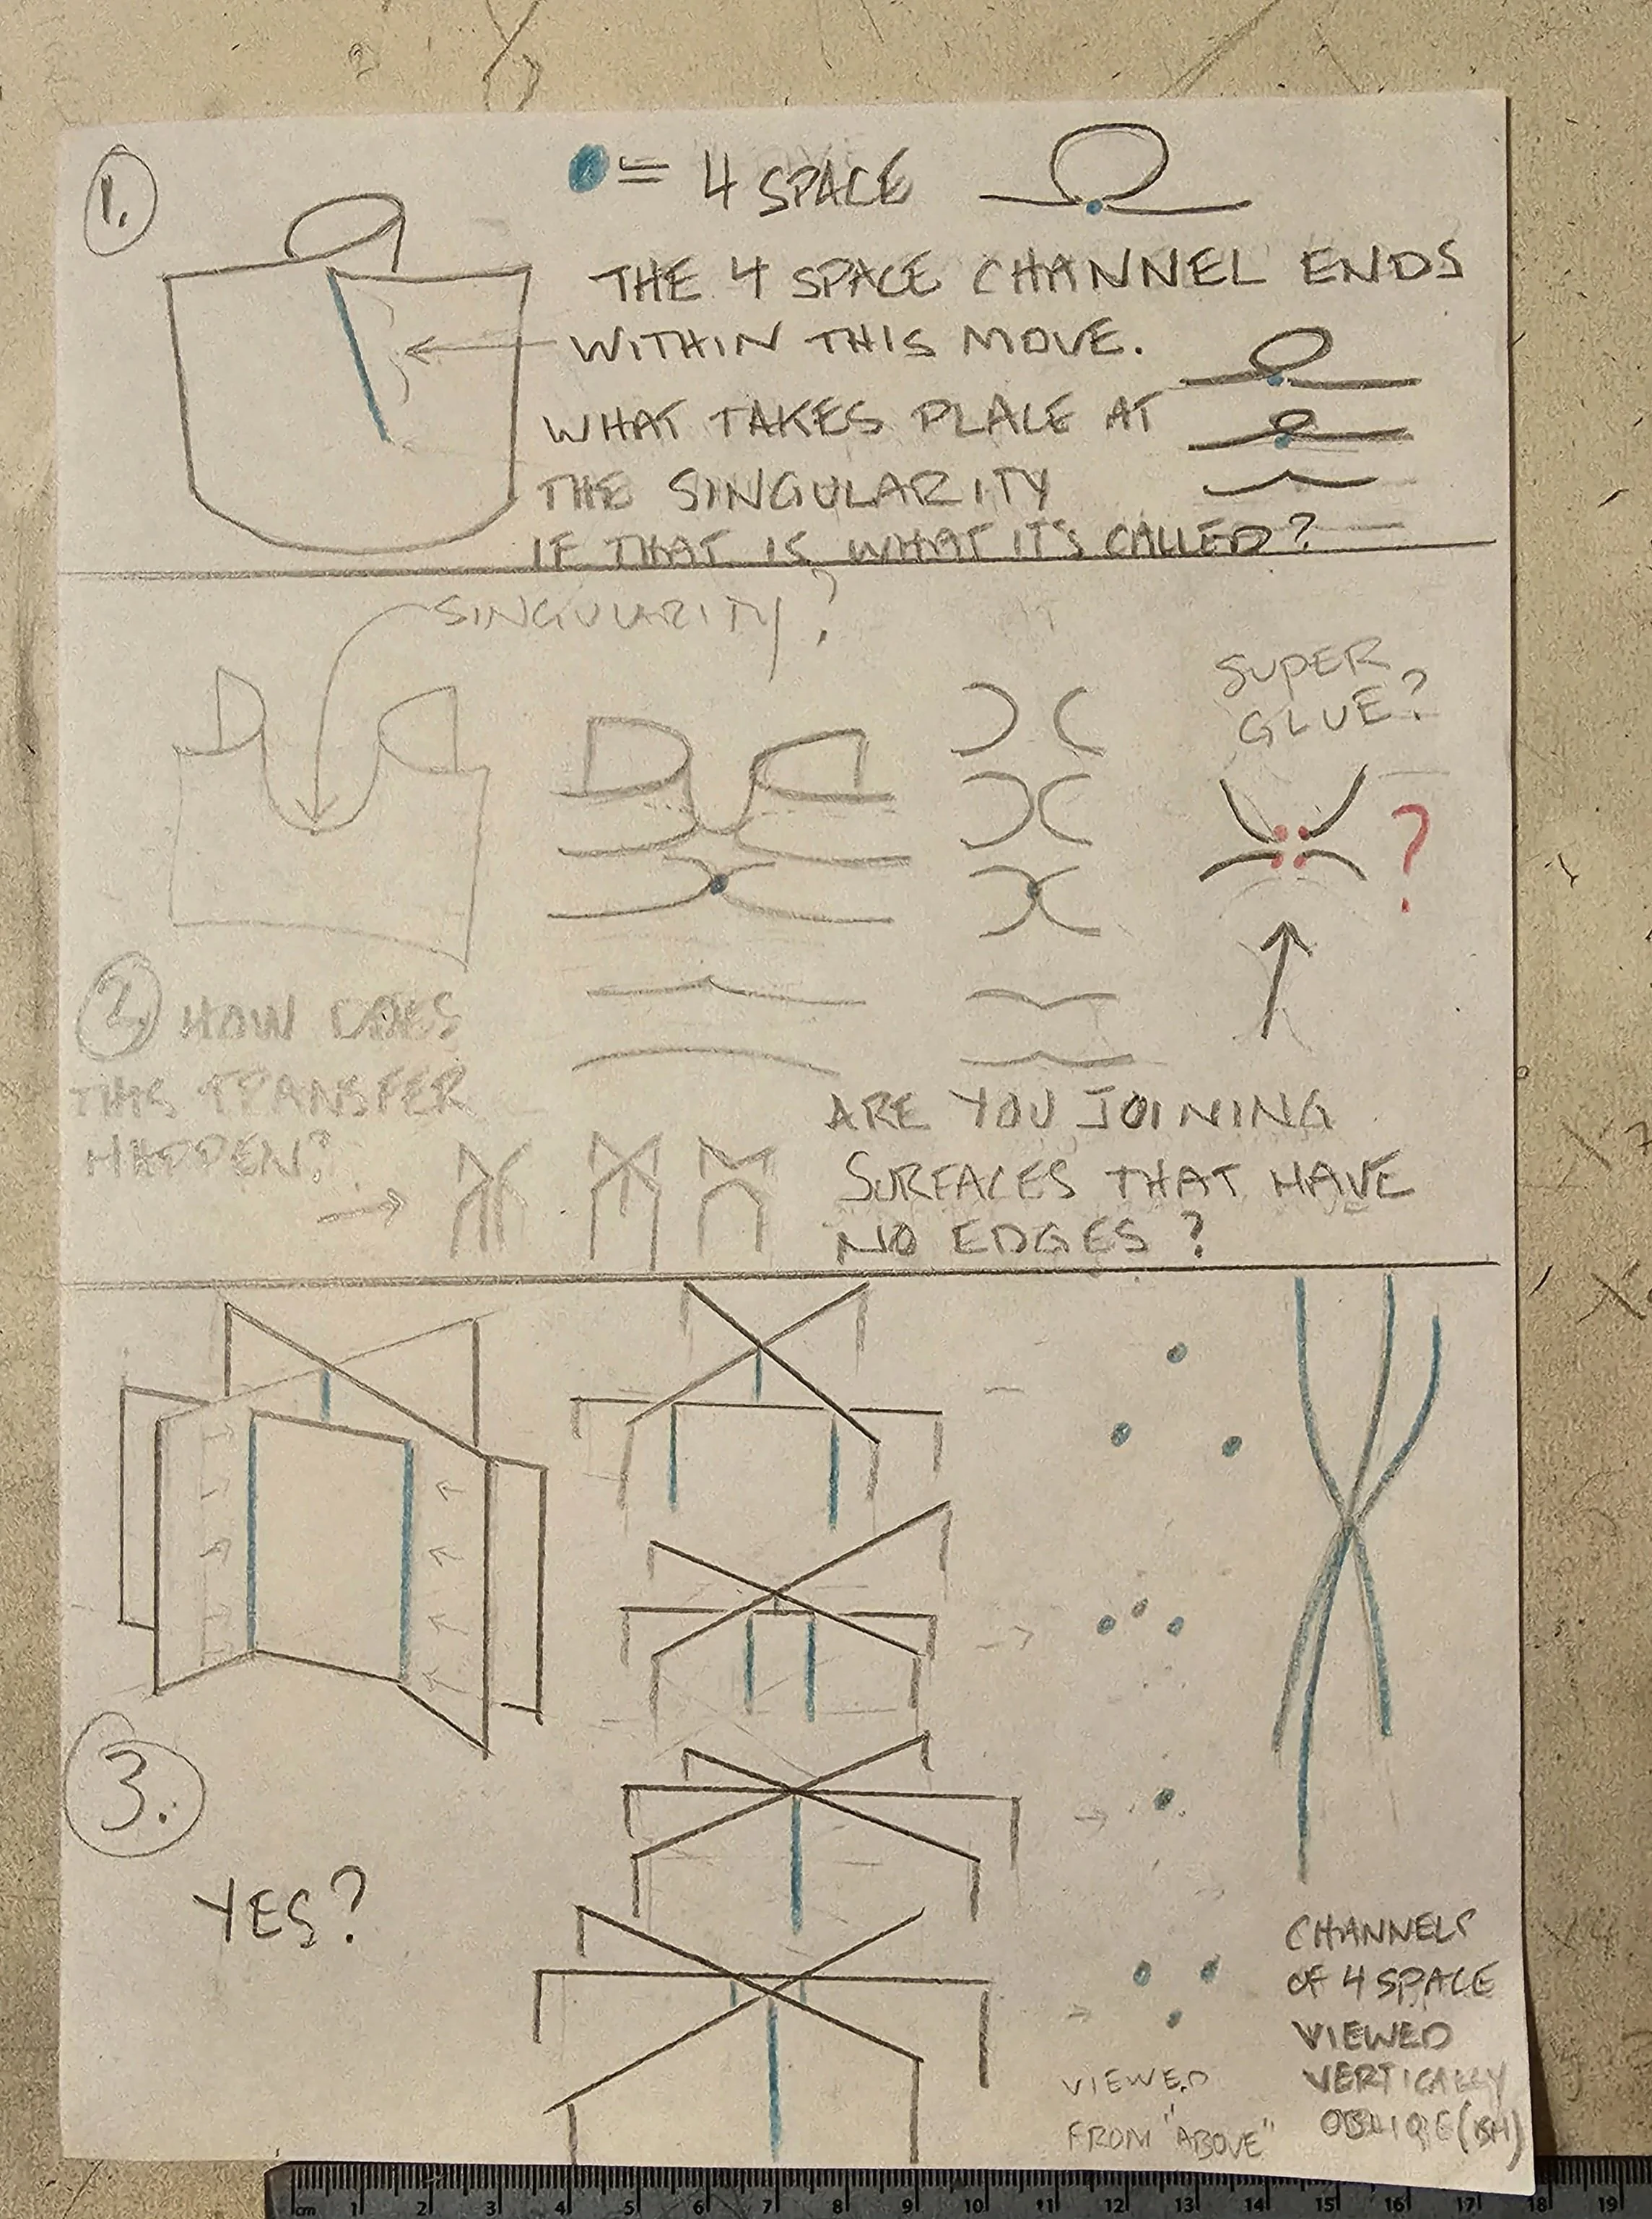 1.
= 4 SPACE
THE 4 SPACE CHANNEL ENDS
WITHIN THIS MOVE.
WHAT TAKES PLALE AT
THE SINGULARITY
IF THAT IS WHAT IT'S CALLED?
SINGULARITY?
SUPER
GLUE?
?
2. HOW DOES
THIS TRANSFER
HAPPEN?
ARE YOU JOINING
SURFACES THAT HAVE
NO EDGES?
3.
YES?
VIEWED
FROM "ABOVE"
CHANNELS
OF 4 SPACE
VIEWED
VERTICALLY
OBLIQE(ISH)
cm 1 2 3 4 5 6 7 8 9 10 11 12 13 14 15 16 17 18 19